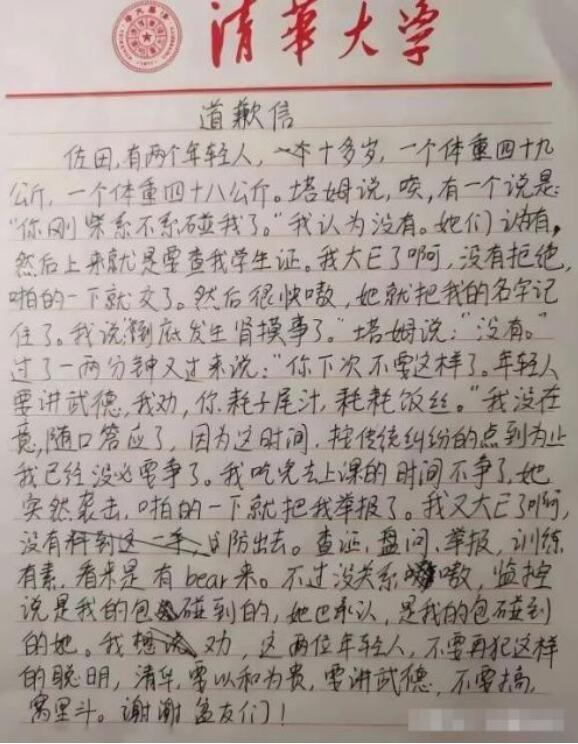 清華大学
道歉信
佐田,有两个年轻人,一个十多岁,一个体重四十九
公斤,一个体重四十八公斤。塔姆说,唉,有一个说是:
“你刚柴系不系碰我了。”我认为没有。她们认为有,
然后上来就是要查我学生证。我大E了啊,没有拒绝,
啪的一下就交了。然后很快嗷,她就把我的名字记
住了。我说:“到底发生肾摸事了。”塔姆说:“没有。”
过了一两分钟又过来说:“你下次不要这样了。年轻人
要讲武德,我劝,你耗子尾汁,耗耗饭丝。”我没在
意,随口答应了,因为这时间,按传统纠纷的点到为止
我已经没必要争了。我吃完去上课的时间不争了,她
突然袭击,啪的一下就把我举报了。我又大E了啊,
没有料到这一手,防出去。查证、盘问、举报,训练
有素,看来是有bear来。不过没关系嗷,监控
说是我的包碰到的,她也承认,是我的包碰到
的她。我想说劝,这两位年轻人,不要再犯这样
的聪明,清华,要以和为贵,要讲武德,不要搞
窝里斗。谢谢盆友们!